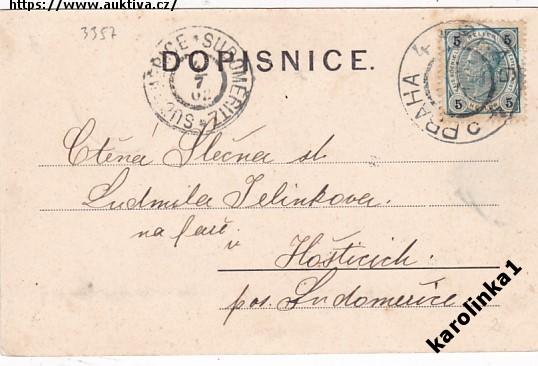 https://www.auktiva.cz/
3357
DOPISNICE.
SUDOMĚŘITZ
7
02
PRAHA 4
5 5
5 5
Ctěná Slečna sl.
Ludmila Jelinkova
na faře
v
Hošticích
pos. Sudoměřice
karolinka1